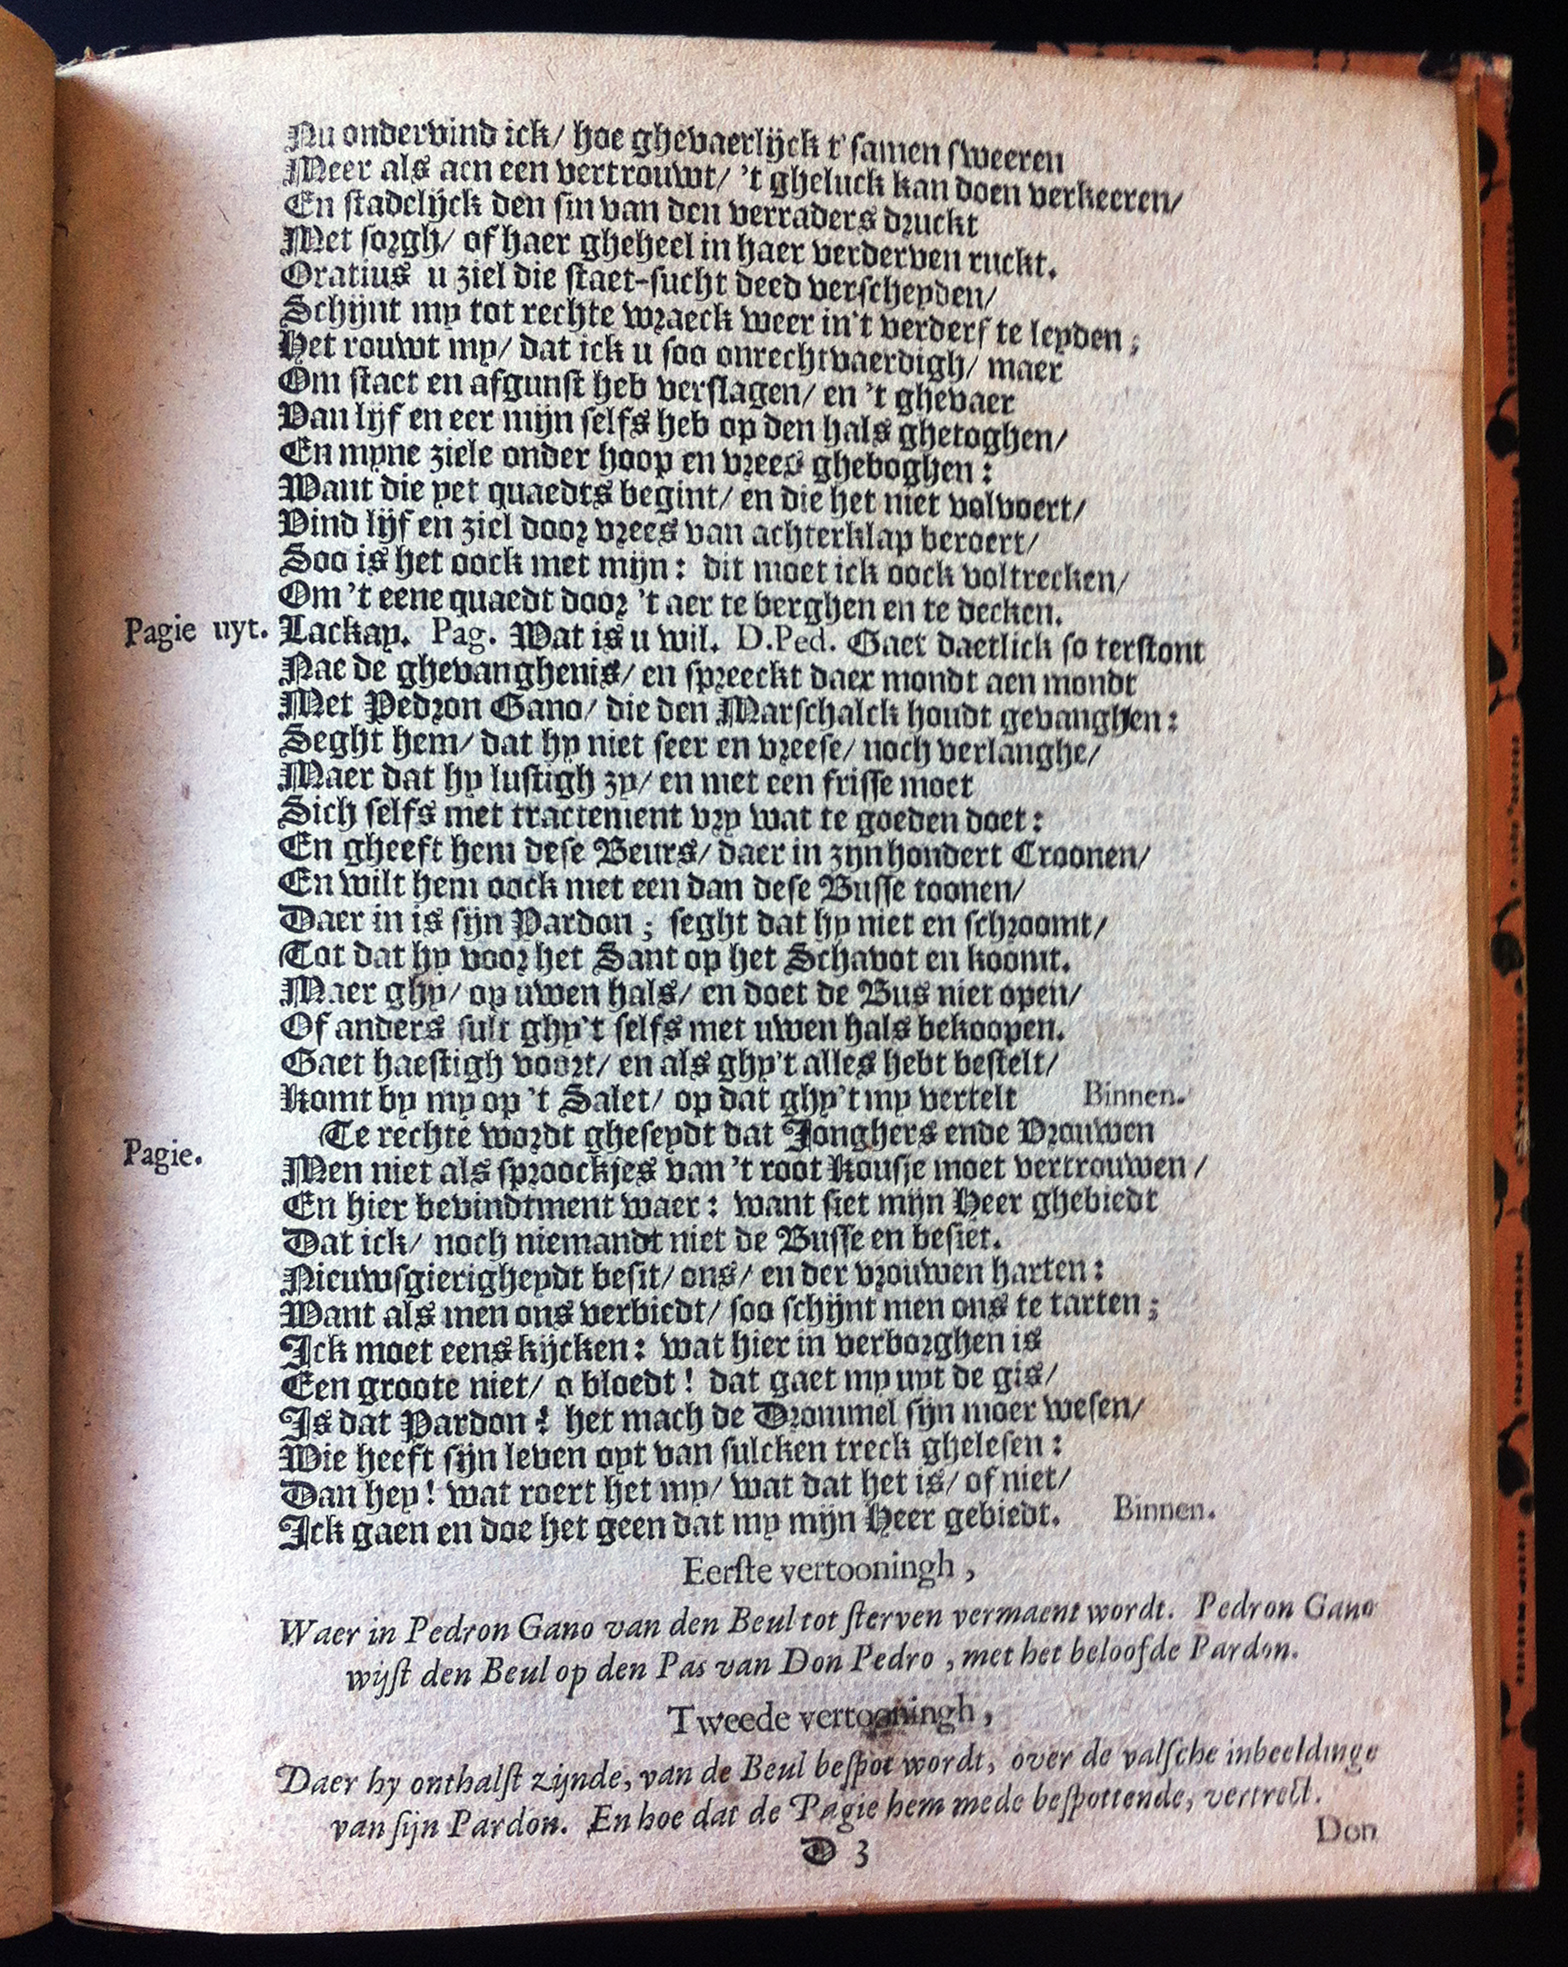 Nu ondervind ick/ hoe ghevaerlijck t'samen sweeren
Meer als aen een vertrouwt/ 't gheluck kan doen verkeeren/
En stadelijck den sin van den verraders druckt
Met sorgh/ of haer gheheel in haer verderven ruckt.
Oratius u ziel die staet-sucht deed verscheyden/
Schijnt my tot rechte wraeck weer in't verderf te leyden;
Het rouwt my/ dat ick u soo onrechtvaerdigh/ maer
Om staet en afgunst heb verslagen/ en 't ghevaer
Van lijf en eer mijn selfs heb op den hals ghetoghen/
En myne ziele onder hoop en vrees gheboghen:
Want die yet quaedts begint/ en die het niet volvoert/
Vind lijf en ziel door vrees van achterklap beroert/
Soo is het oock met mijn: dit moet ick oock voltrecken/
Om 't eene quaedt door 't aer te berghen en te decken.
Pagie uyt. Lackay. Pag. Wat is u wil. D.Ped. Gaet daetlick so terstont
Nae de ghevanghenis/ en spreeckt daer mondt aen mondt
Met Pedron Gano/ die den Marschalck houdt gevanghen:
Seght hem/ dat hy niet seer en vreese/ noch verlanghe/
Maer dat hy lustigh zy/ en met een frisse moet
Sich selfs met tractement vry wat te goeden doet:
En gheeft hem dese Beurs/ daer in zyn hondert Croonen/
En wilt hem oock met een dan dese Busse toonen/
Daer in is sijn Pardon; seght dat hy niet en schroomt/
Tot dat hy voor het Sant op het Schavot en koomt.
Maer ghy/ op uwen hals/ en doet de Bus niet open/
Of anders sult ghy't selfs met uwen hals bekoopen.
Gaet haestigh voort/ en als ghy't alles hebt bestelt/
Komt by my op 't Salet/ op dat ghy't my vertelt Binnen.
Pagie. Te rechte wordt gheseydt dat Jonghers ende Vrouwen
Men niet als sproockjes van 't root Kousje moet vertrouwen/
En hier bevindtment waer: want siet mijn Heer ghebiedt
Dat ick/ noch niemandt niet de Busse en besiet.
Nieuwsgierigheydt besit/ ons/ en der vrouwen harten:
Want als men ons verbiedt/ soo schijnt men ons te tarten;
Ick moet eens kijcken: wat hier in verborghen is
Een groote niet/ o bloedt! dat gaet my uyt de gis/
Is dat Pardon? het mach de Drommel sijn moer wesen/
Wie heeft sijn leven oyt van sulcken treck ghelesen:
Dan hey! wat roert het my/ wat dat het is/ of niet/
Ick gaen en doe het geen dat my mijn Heer gebiedt. Binnen.
Eerste vertooningh,
Waer in Pedron Gano van den Beul tot sterven vermaent wordt. Pedron Gano
wijst den Beul op den Pas van Don Pedro, met het beloofde Pardon.
Tweede vertooningh,
Daer hy onthalst zijnde, van de Beul bespot wordt, over de valsche inbeeldinge
van sijn Pardon. En hoe dat de Pagie hem mede bespottende, vertrect.
D 3
Don